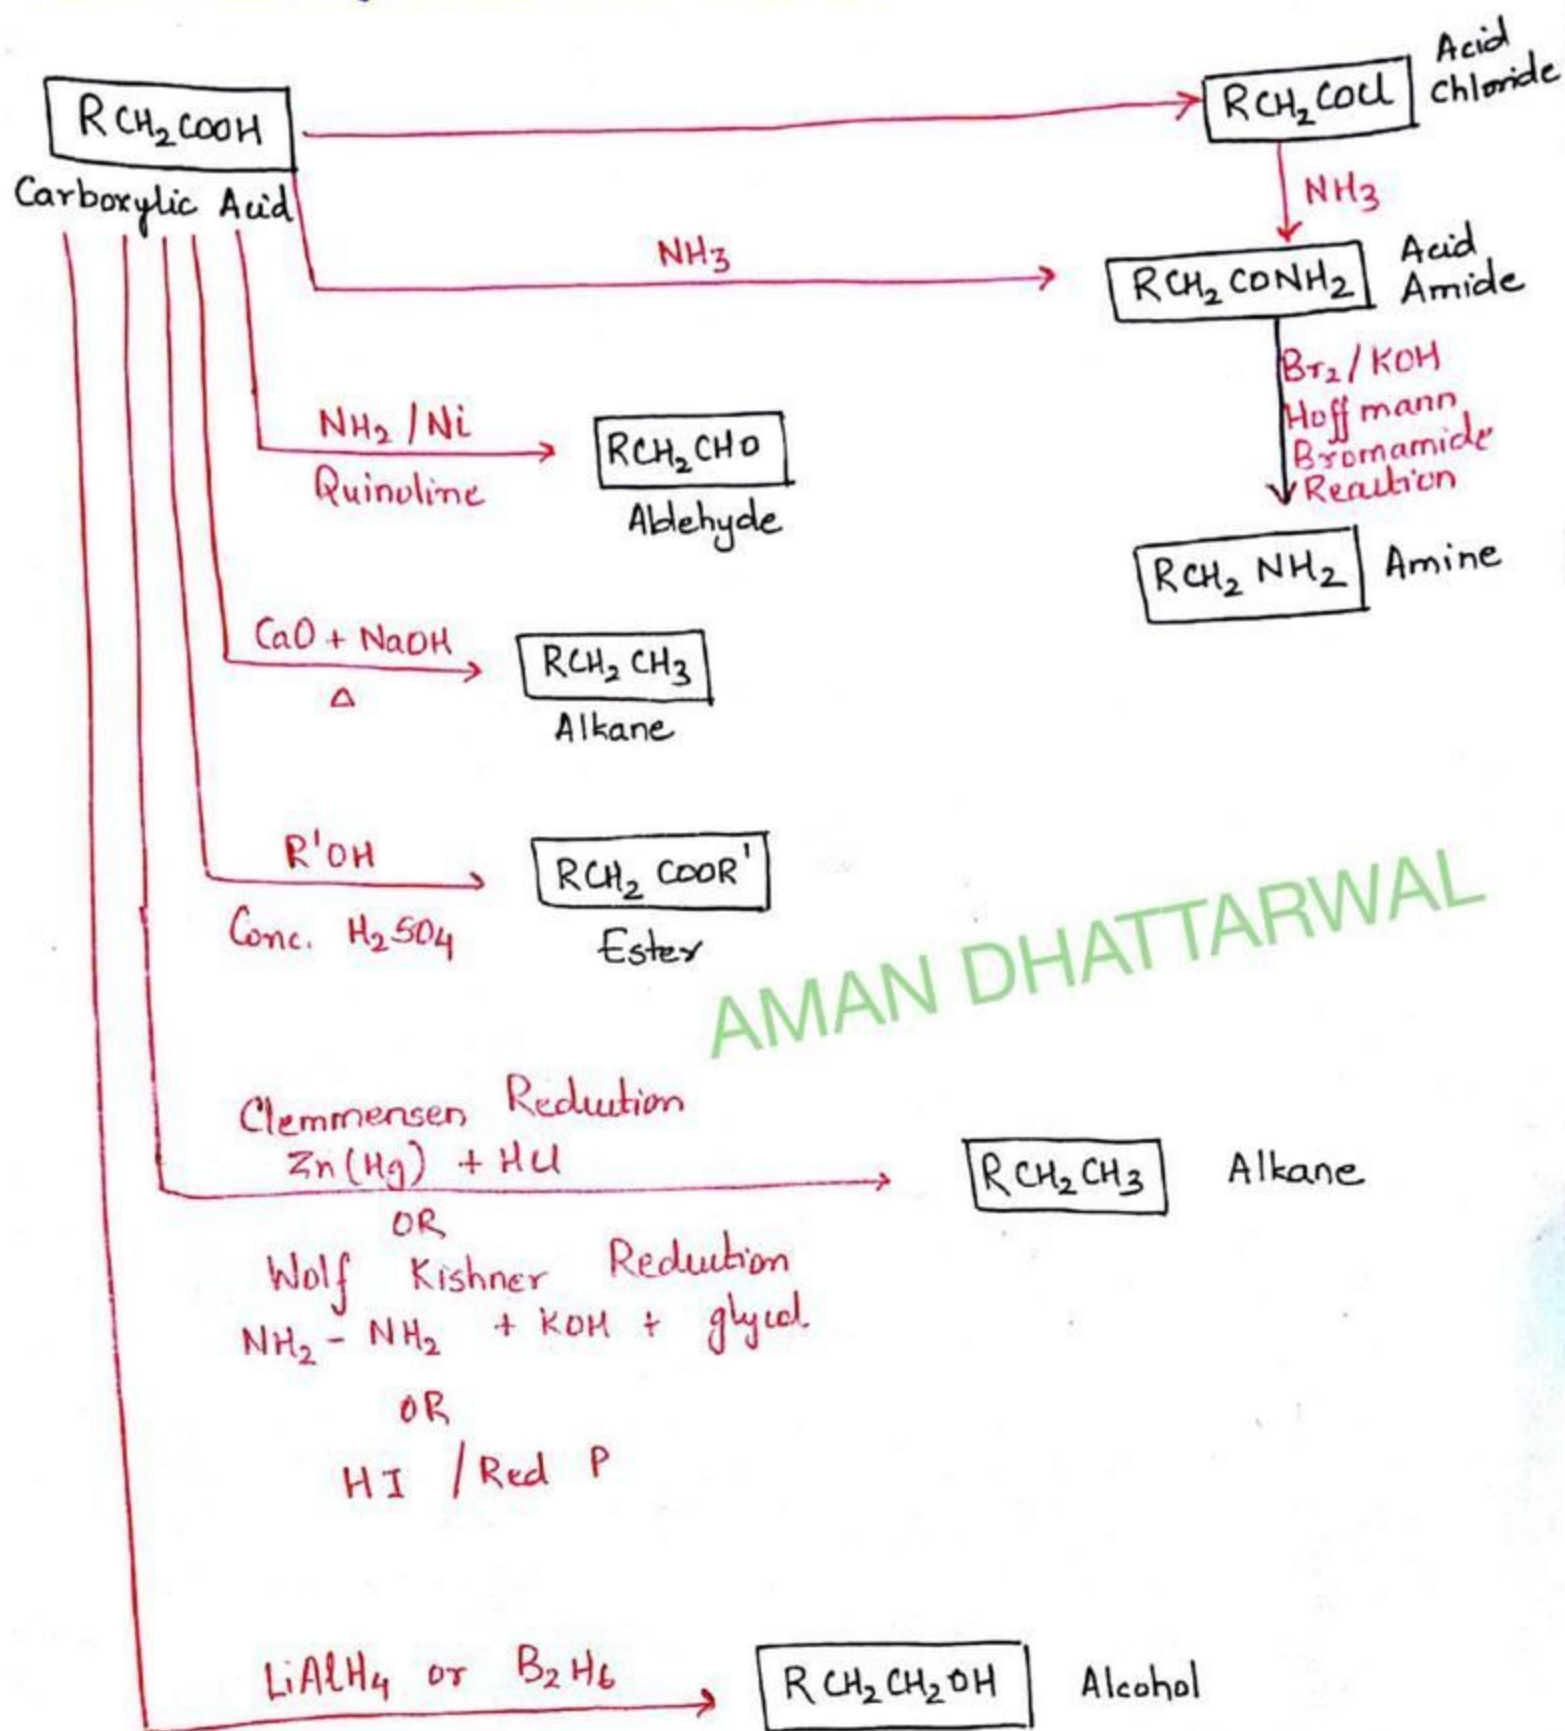 RCH₂COOH
Carboxylic Acid
RCH₂COCl
Acid
Chloride
NH₃
NH₃
RCH₂CONH₂
Acid
Amide
Br₂/KOH
Hoffmann
Bromamide
Reaction
RCH₂NH₂
Amine
NH₂/Ni
Quinoline
RCH₂CHO
Aldehyde
CaO + NaOH
Δ
RCH₂CH₃
Alkane
R'OH
Conc. H₂SO₄
RCH₂COOR'
Ester
AMAN DHATTARWAL
Clemmensen Reduction
Zn(Hg) + HCl
RCH₂CH₃
Alkane
OR
Wolf Kishner Reduction
NH₂ - NH₂ + KOH + glycol.
OR
HI / Red P
LiAlH₄ or B₂H₆
RCH₂CH₂OH
Alcohol